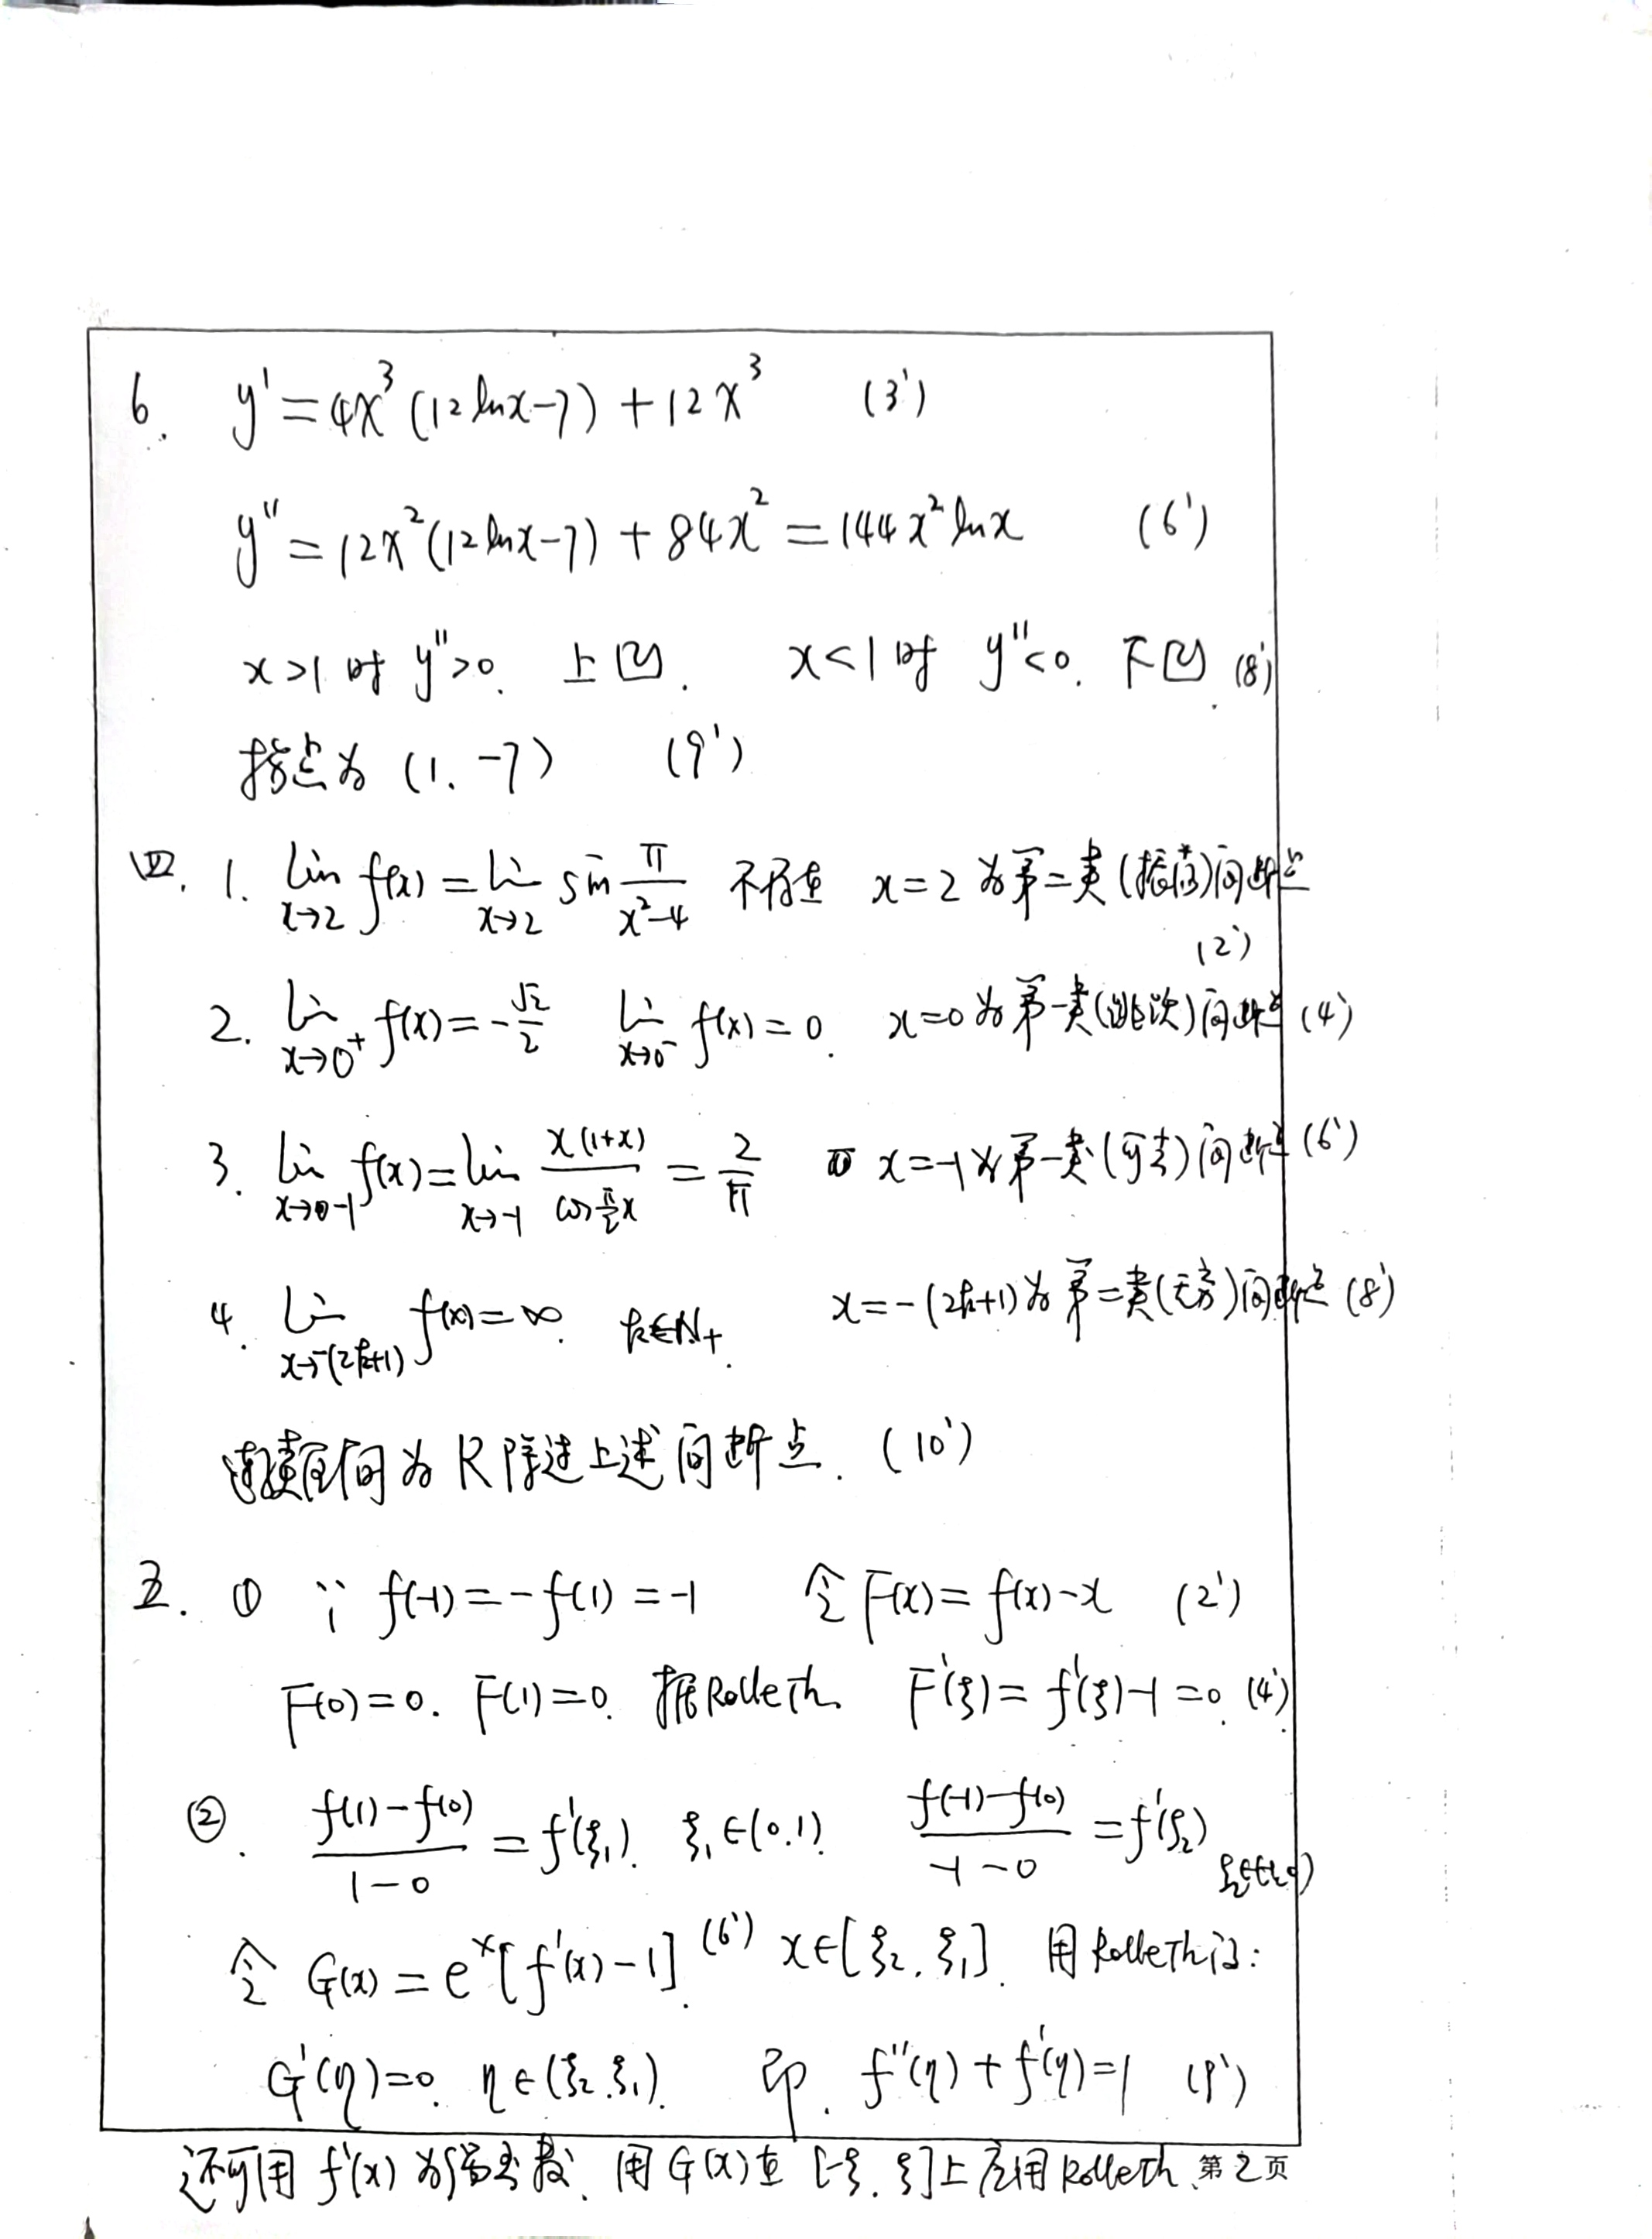 6. y' = 4x³(12lnx-7) + 12x³ (3')
y'' = 12x²(12lnx-7) + 84x² = 144x²lnx (6')
x>1时 y''>0. 上凹. x<1时 y''<0. 下凹. (8')
拐点为 (1, -7) (9')
四. 1. lim_{x→2} f(x) = lim_{x→2} sin π/(x²-4) 不存在 x=2为第二类(振荡)间断点
(2')
2. lim_{x→0⁺} f(x) = -√2/2 lim_{x→0⁻} f(x) = 0. x=0为第一类(跳跃)间断点 (4')
3. lim_{x→-1} f(x) = lim_{x→-1} x(1+x)/cos(π/2)x = 2/π x=-1为第一类(可去)间断点 (6')
4. lim_{x→-(2k+1)} f(x) = ∞. k∈N₊. x=-(2k+1)为第二类(无穷)间断点 (8')
连续区间为R除过上述间断点. (10')
五. ① ∵ f(-1) = -f(1) = -1 令F(x) = f(x)-x (2')
F(0)=0. F(1)=0. 据RolleTh. F'(ξ) = f'(ξ)-1 = 0. (4')
②. (f(1)-f(0))/(1-0) = f'(ξ₁). ξ₁∈(0,1). (f(-1)-f(0))/(-1-0) = f'(ξ₂) ξ₂∈(-1,0)
令 G(x) = eˣ[f'(x)-1]. (6') x∈[ξ₂, ξ₁]. 用RolleTh
G'(η)=0. η∈(ξ₂, ξ₁). 即. f''(η) + f'(η) = 1 (9')
还可用 f'(x) 为偶函数, 用G(x)在[-ξ, ξ]上应用RolleTh. 第2页